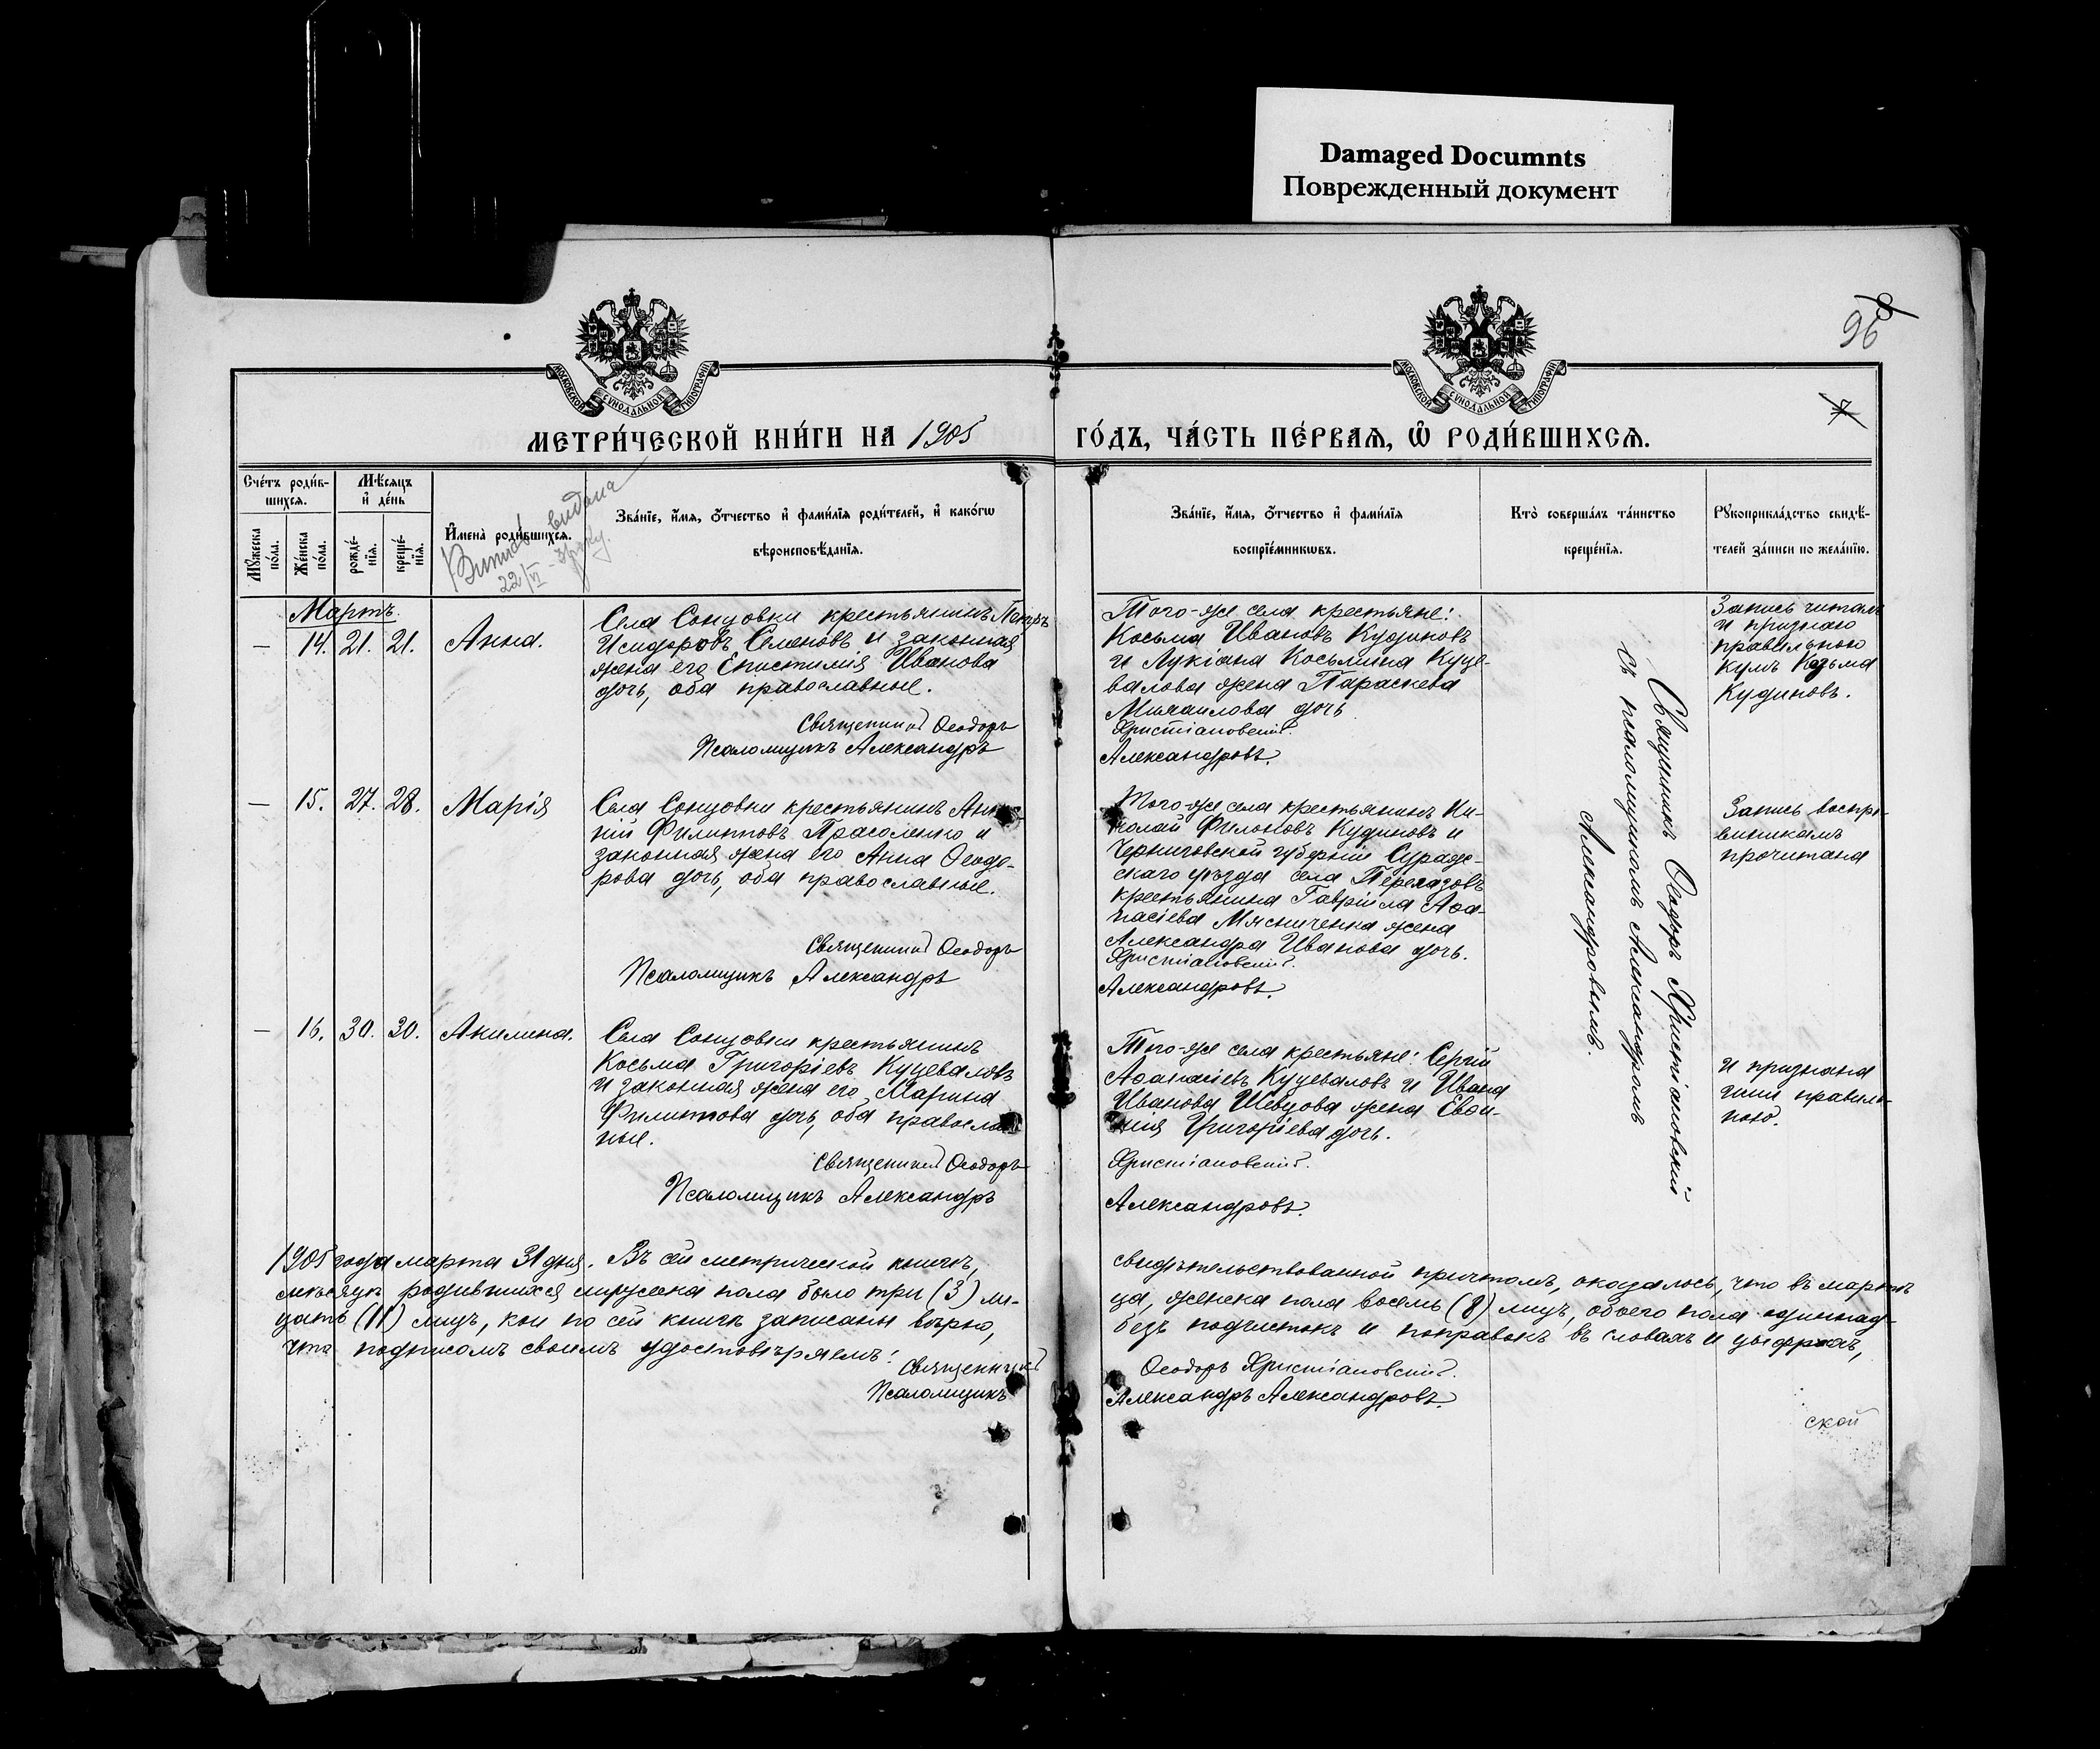 Damaged Documnts
Поврежденный документ
96
8
7
МОСКОВСКОЙ СУНОДАЛЬНОЙ ТИПОГРАФІИ
МОСКОВСКОЙ СУНОДАЛЬНОЙ ТИПОГРАФІИ
МЕТРИ́ЧЕСКОЙ КНИ́ГИ НА 1905
ГО́ДЪ, ЧА́СТЬ ПЕ́РВАѦ, Ѡ҆ РОДИ́ВШИХСѦ.
Сче́тъ роди́в-
шихсѧ.
Мꙋжеска по́ла.
Же́нска по́ла.
Мѣ́сѧцъ
и҆ де́нь
рожде́-нїѧ.
креще́-нїѧ.
И҆мена̀ роди́вшихсѧ.
Виписъ видана
22/VI - року.
Зва́нїе, и҆́мѧ, ѻ҆́тчество и҆ фами́лїѧ роди́телей, и҆ како́гѡ
вѣроисповѣ́данїѧ.
Зва́нїе, и҆́мѧ, ѻ҆́тчество и҆ фами́лїѧ
воспрїе́мникѡвъ.
Кто̀ соверша́лъ та́инство
креще́нїѧ.
Рꙋкоприкла́дство свидѣ́-
телей за́писи по жела́нїю.
Мартъ.
— 14. 21. 21. Анна.
Села Сонцовки крестьянинъ Петръ
Исидоровъ Семеновъ и законная
жена его Епистимія Иванова
дочь, оба православные.
Священникъ Ѳеодоръ
Псаломщикъ Александръ
Того-же села крестьяне:
Косьма Ивановъ Кудиновъ
и Лукіана Косьмина Куце-
валова жена Параскева
Михаилова дочь
Христіановскій.
Александровъ.
Запись читалъ
и признаю
правильною
кумъ Козьма
Кудиновъ.
— 15. 27. 28. Марія
Села Сонцовки крестьянинъ
ній Филипповъ Прасоленко и
законная жена его Анна Ѳеодо-
рова дочь, оба православные.
Священникъ Ѳеодоръ
Псаломщикъ Александръ
Того-же села крестьянинъ Ни-
колай Филоновъ Кудиновъ и
Черниговской губерніи Сураж-
скаго уѣзда села Перелазовъ
крестьянина Гавріила Аѳа-
насіева Мясниченка жена
Александра Иванова дочь.
Христіановскій.
Александровъ.
Запись воспрі-
емникамъ
прочитана
— 16. 30. 30. Акилина.
Села Сонцовки крестьянинъ
Косьма Григоріевъ Куцеваловъ
и законная жена его Марина
Филиппова дочь, оба православ
ные.
Священникъ Ѳеодоръ
Псаломщикъ Александръ
Того-же села крестьяне: Сергій
Аѳанасіевъ Куцеваловъ и Ивана
Иванова Шевцова жена Евѳи-
мія Григоріева дочь.
Христіановскій.
Александровъ.
и признана
ими правиль-
ною.
Священникъ Ѳеодоръ Христіановскій
съ псаломщикомъ Александромъ
Александровымъ.
1905 года марта 31 дня. Въ сей метрической книгѣ, свидѣтельствованной причтомъ, оказалось, что въ мартѣ
мѣсяцѣ родившихся мужеска пола было три (3) ли-ца, женска пола восемь (8) лицъ, обоего пола одиннад-
цать (11) лицъ, кои по сей книгѣ записаны вѣрно, безъ подчистокъ и поправокъ въ словахъ и цыфрахъ,
что подписомъ своимъ удостовѣряемъ:
Священникъ Ѳеодоръ Христіановскій.
Псаломщикъ Александръ Александровъ.
ской